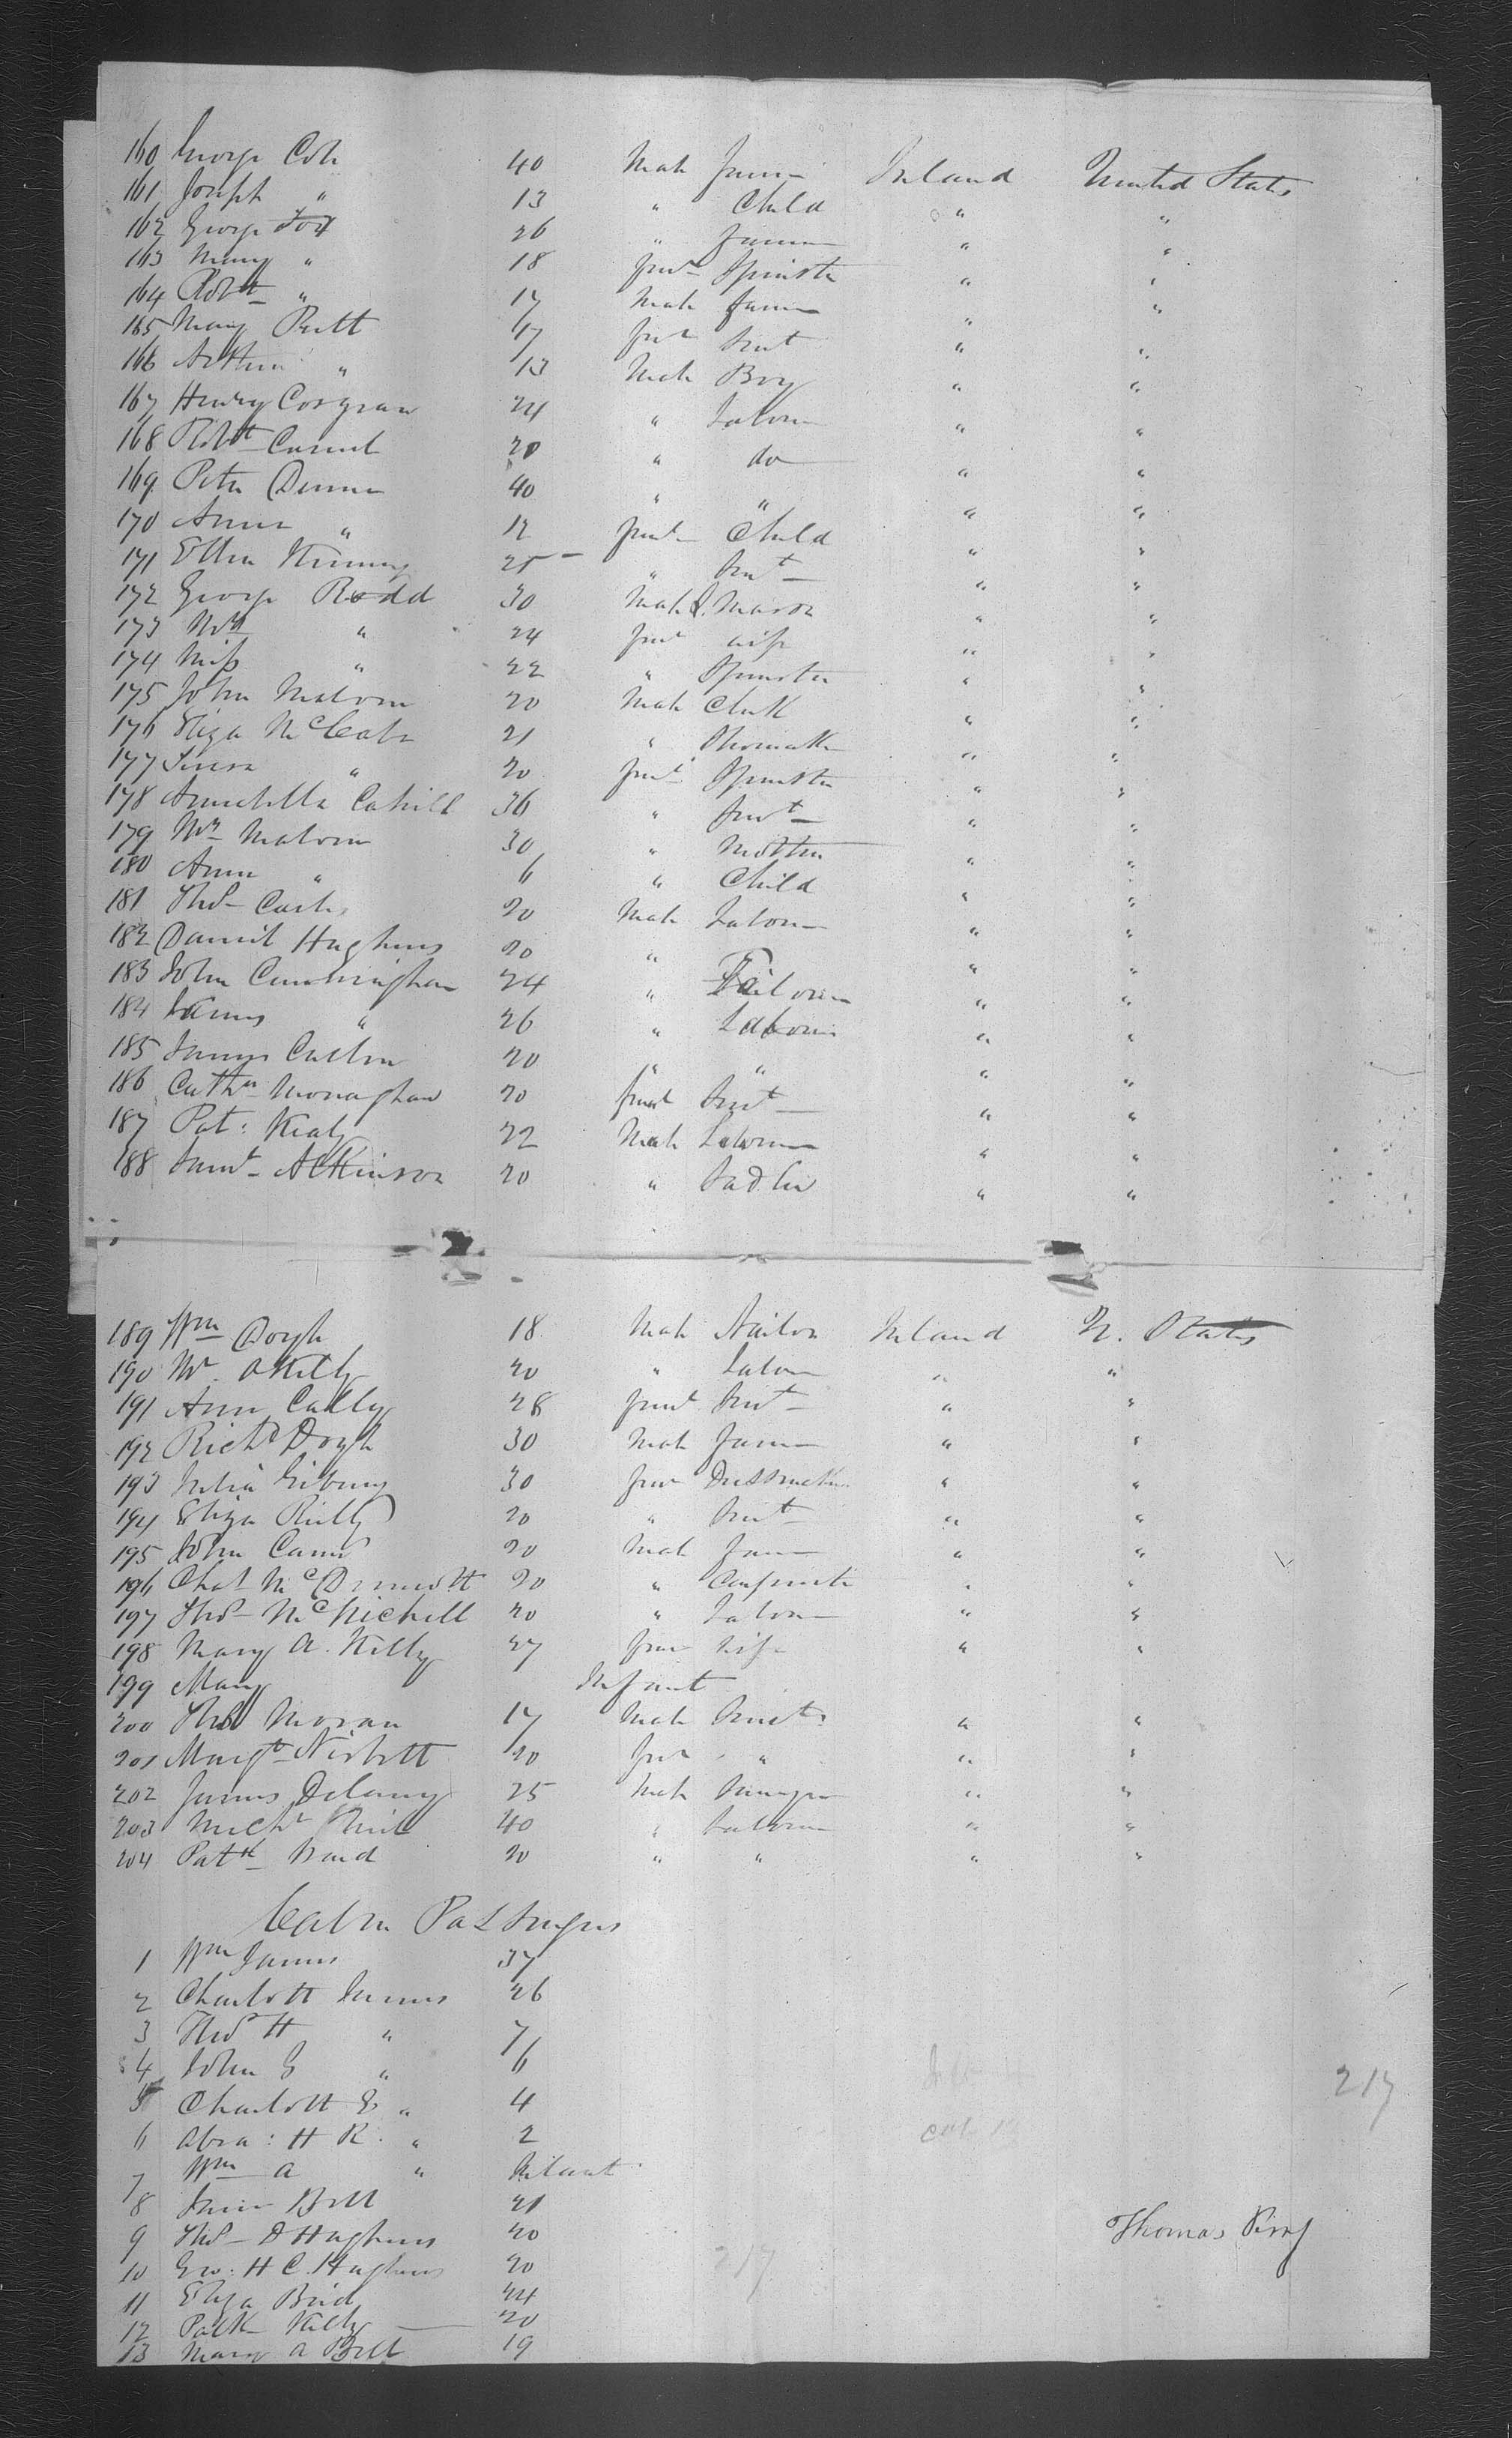 160 George Cole 40 Male Farmer Ireland United States
161 Joseph " 13 " Child " "
162 George Fox 26 " Farmer " "
163 Mary " 18 Feml Spinster " "
164 Robt " 17 Male Farmer " "
165 Mary Pratt 17 Fem Servt " "
166 Arthur " 13 Male Boy " "
167 Henry Cosgrave 24 " Labourer " "
168 Robt 20 " do " "
169 Peter 40 " " " "
170 Anne " 12 Feml Child " "
171 Ellen 25 " Servt " "
172 George Rodd 30 Male S. Mason " "
173 Mrs " 24 Feml wife " "
174 Miss " 22 " Spinster " "
175 John Malvern 20 Male Clerk " "
176 Eliza McCabe 21 " Shoemaker " "
177 " 20 Feml Spinster " "
178 Annabella Cahill 36 " Servt " "
179 Mrs Malvern 30 " Mother " "
180 Anne " 6 " Child " "
181 Thos 20 Male Labourer " "
182 Daniel Hughens 20 " " "
183 John Cunningham 24 " " "
184 James " 26 " Labourer " "
185 James Cullen 20 " " " "
186 Cathn Monaghan 20 Feml Servt " "
187 Pat: Kealy 22 Male Labourer " "
188 Saml Atkinson 20 " Sadler " "
189 Wm Doyle 18 Male Sailor Ireland U. States
190 20 " Labour " "
191 Ann Cally 28 Feml Servt " "
192 Richd Doyle 30 Male Farmer " "
193 Julia 30 Fem Dressmaker " "
194 Eliza Reilly 20 " Servt " "
195 John 20 Male Farmer " "
196 Chas McDermott 20 " Carpenter " "
197 Thos McNichell 20 " Labour " "
198 Mary A. Kelly 27 Fem Wife " "
199 Mary Infant
200 Thos Moran 17 Male Servt " "
201 Margt Nisbett 20 Fem " " "
202 James Delany 25 Male " "
203 Michl 40 " Labourer " "
204 Patk 20 " " " "
Cabin Passengers
1 Wm James 37
2 Charlott James 26
3 Thos H " 7
4 John G " 6
5 Charlott E " 4
6 Abra: H R. " 2
7 Wm A " Infant
8 Jane Bell 21
9 Thos D Hughens 20
10 Geo: H C. Hughens 20
11 Eliza 24
12 Patk Kelly 20
13 Mary A Bell 19
217
217
Thomas